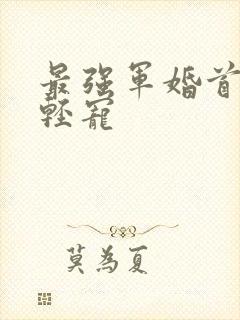 最强軍婚首
輕寵
莫為夏